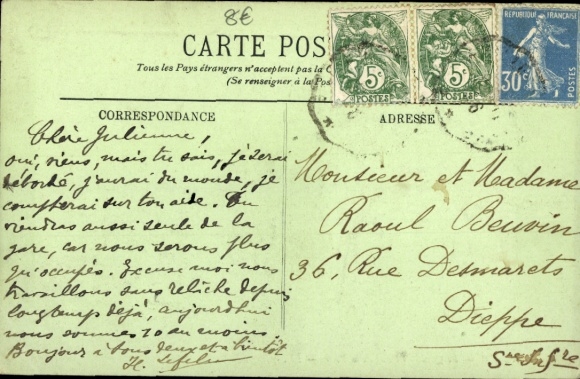 8€
CARTE POS
Tous les Pays étrangers n'acceptent pas la C
(Se renseigner à la Pos
RÉPUBLIQUE FRANÇAISE
5c
POSTES
5c
POSTES
30c
POSTES
CORRESPONDANCE
ADRESSE
Chère Julienne,
oui, viens, mais tu sais, je serai
débordé, j'aurai du monde, je
compterai sur ton aide. Tu
viendras aussi seule de la
gare, car nous serons plus
qu'occupés. Excuse moi nous
travaillons sans relâche depuis
longtemps déjà, aujourd'hui
nous sommes 10 au moins.
Bonjour à tous deux et à bientôt
H.
Monsieur et Madame
Raoul Beuvin
36, Rue Desmarets
Dieppe
Sne Infre